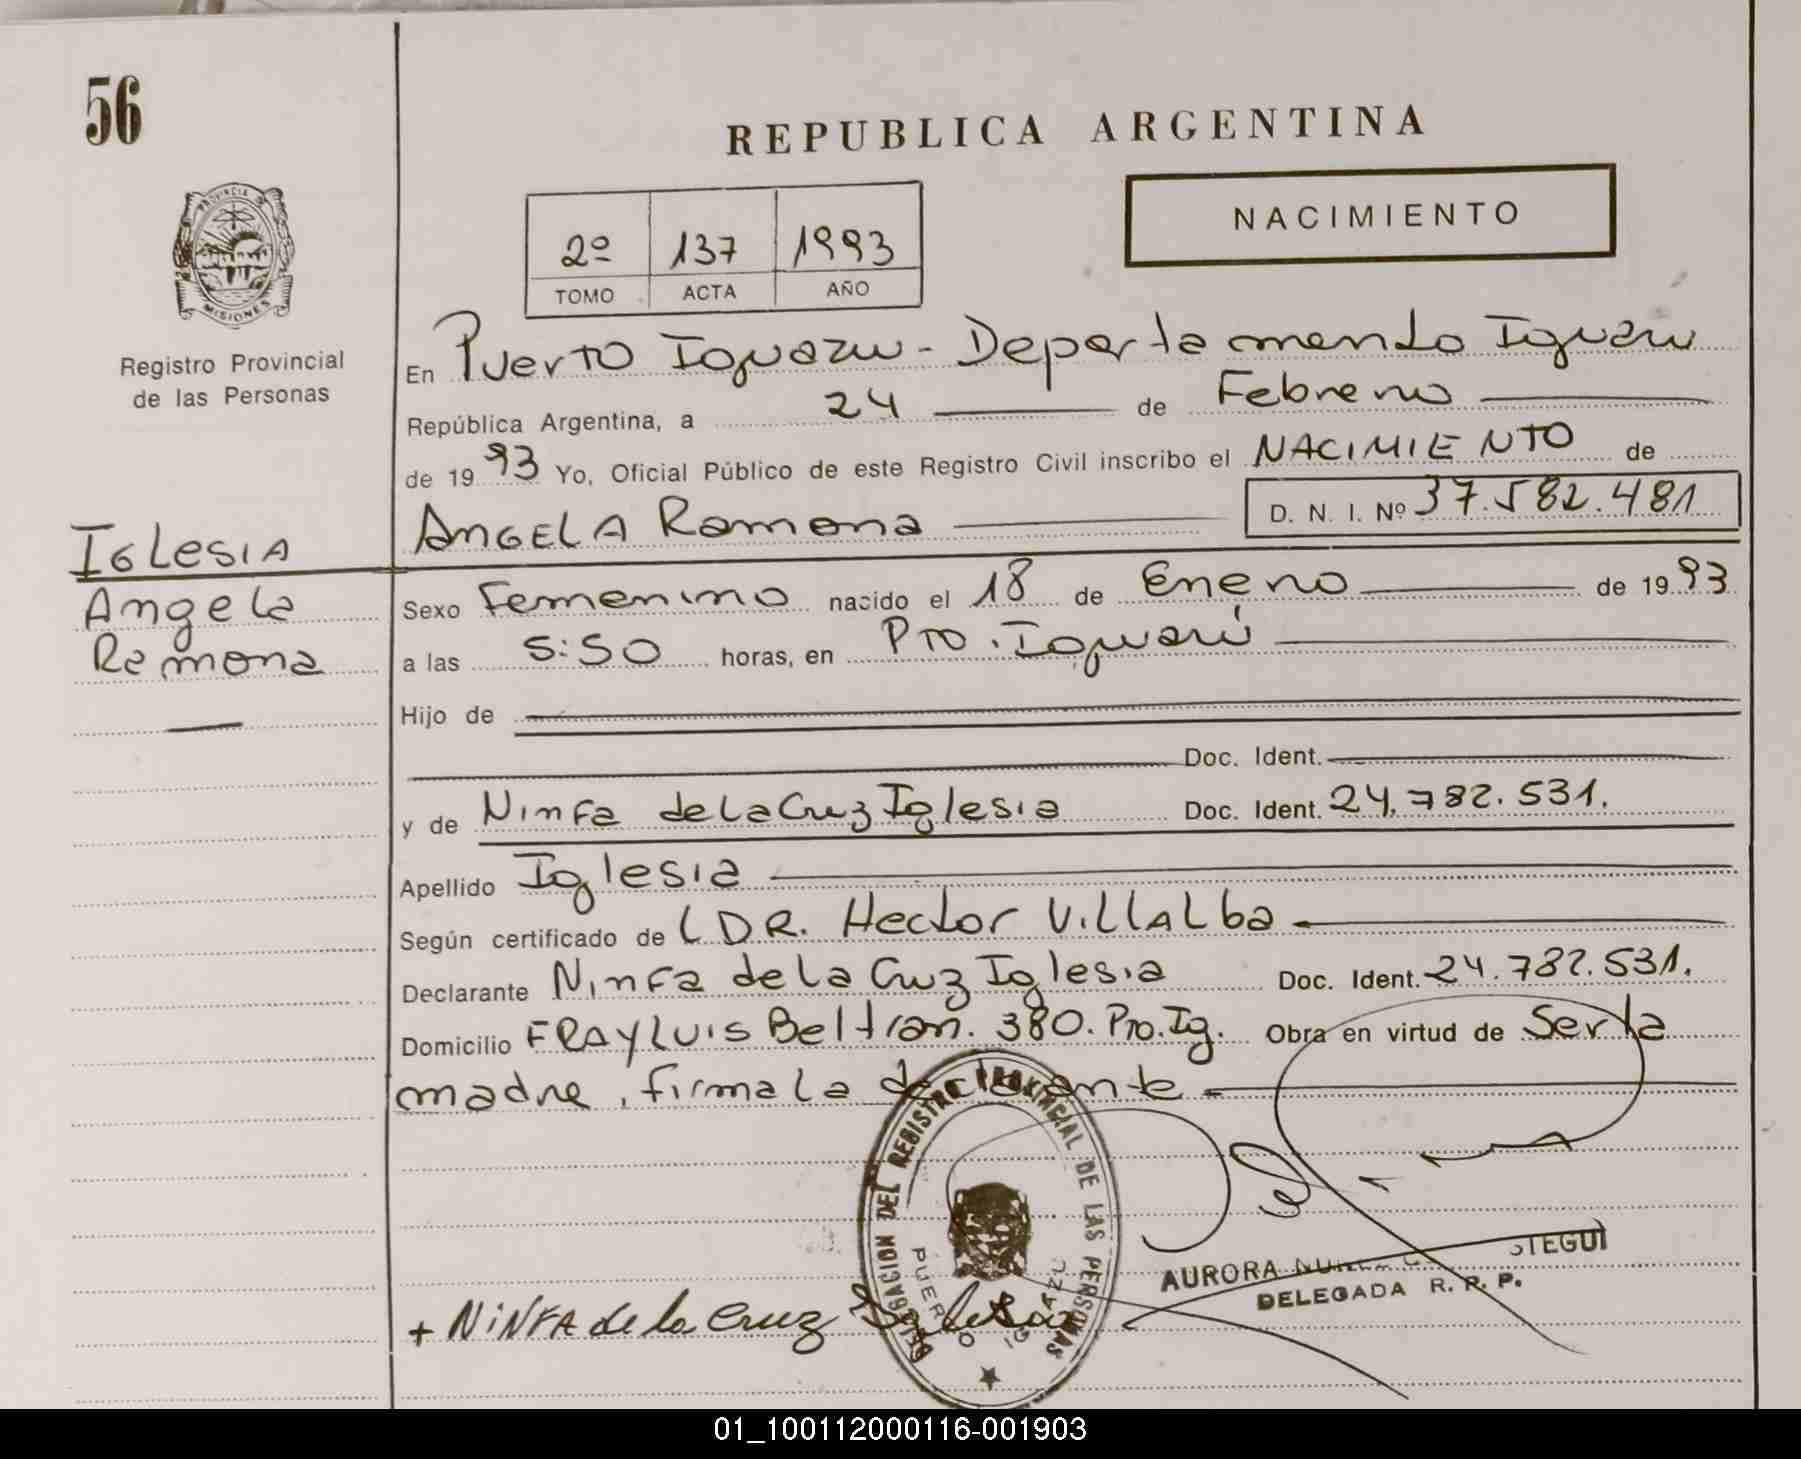 56
REPUBLICA ARGENTINA
PROVINCIA
MISIONES
Registro Provincial
de las Personas
NACIMIENTO
2º 137 1993
TOMO ACTA AÑO
En Puerto Iguazu - Departamento Iguazu
República Argentina, a 24 de Febrero
de 1993 Yo, Oficial Público de este Registro Civil inscribo el NACIMIENTO de
ANGELA Ramona D. N. I. Nº 37.582.481
IGLesIA
Angela
Ramona
Sexo Femenino nacido el 18 de Enero de 1993
a las 5:50 horas, en Pto. Iguazú
Hijo de
Doc. Ident.
y de Ninfa de la Cruz Iglesia Doc. Ident. 24.782.531.
Apellido Iglesia
Según certificado de DR. Hector VillALba
Declarante Ninfa de la Cruz Iglesia Doc. Ident. 24.782.531.
Domicilio FRAY LUIS Beltran. 380. Pto. Ig. Obra en virtud de Ser la
madre, firma la declarante
DELEGACION DEL REGISTRO PROVINCIAL DE LAS PERSONAS
PUERTO IGUAZU
AURORA
DELEGADA R. P. P.
+ NiNFA de la Cruz Iglesia
01_100112000116-001903